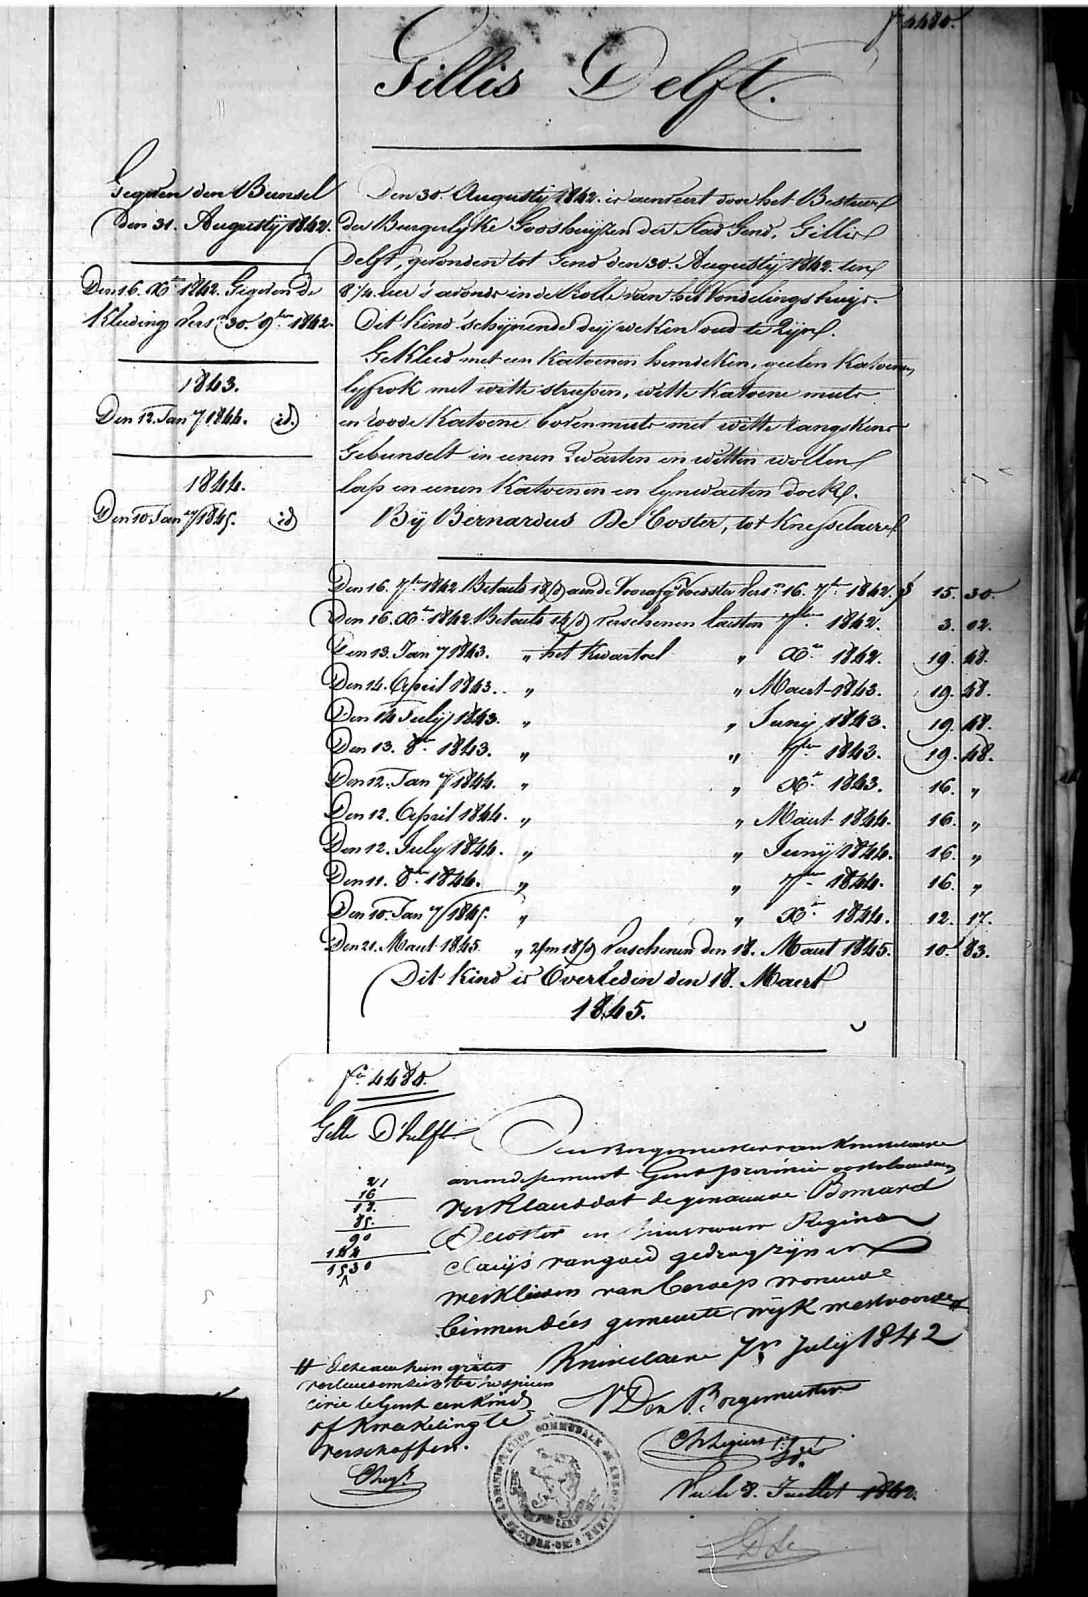 fº 4480.
Gillis Delft.
Gegeven den Bunsel
den 31. Augustij 1842.
Den 16. Xer 1842. Gegeven de
Kleeding Vers. 30. 9ber 1842.
1843.
Den 12. Jany 1844. id.
1844.
Den 10 Jany 1845. id
Den 30. Augustij 1842. is aenveert door het Bestuer
der Burgerlyke Godshuyzen der Stad Gend, Gillis
Delft, gevonden tot Gend den 30. Augustij 1842. ten
8 1/4 uer 's avonds in de Rolle van het Vondelingshuys.
Dit Kind schynende dry weken oud te zyn.
Gekleed met een katoenen hemdeken, geelen Katoenen
lyfrok met witte streepen, witte Katoene muts
en roode Katoene bovenmuts met witte rangskens
Gebunselt in eenen zwarten en witten wollen
lap en eenen Katoenen en lynwaeten doek.
By Bernardus De Coster, tot Knesselaere
Den 16. 7ber 1842 Betaelt 18/d aen de Voorafg Voedster Vers. 16. 7ber 1842. f 15. 30.
Den 16. Xer 1842 Betaelt 14/d verschenen lasten 7ber 1842. 3. 02.
Den 13. Jany 1843. " het Kwartael " Xer 1842. 19. 48.
Den 14. April 1843. " " Maert 1843. 19. 48.
Den 14 July 1843. " " Junij 1843. 19. 48.
Den 13. 8er 1843. " " 7ber 1843. 19. 48.
Den 12. Jany 1844. " " Xer 1843. 16. "
Den 12. April 1844. " " Maert 1844. 16. "
Den 12. July 1844. " " Junij 1844. 16. "
Den 11. 8er 1844. " " 7ber 1844. 16. "
Den 10. Jany 1845. " " Xer 1844. 12. 17.
Den 21. Maert 1845. " 2/m 18/d Verschenen den 18. Maert 1845. 10. 83.
Dit Kind is Overleden den 18. Maert
1845.
fº 4480.
Gille D'helft
21
16
18.
85.
90
144
1530
Den Borgemeester van Knesselaere
arrondissement Gent provincie oostvlaenderen
verklaert dat de genaemde Bernard
Decoster en huysvrouw Regina
Claeijs van goed gedrag zyn en
werklieden van beroep wonende
binnen dées gemeente wyk westvoorde #
Knesselaere 7n July 1842
# hun gratis
civil te Gent een Kind
of Kwakeling te
verschaffen.
Den Borgemeester
Vu le 8. Juillet 1842.